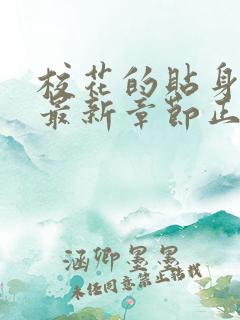 校花的贴身
最新章节正
涵卿墨墨
未经同意禁止转载